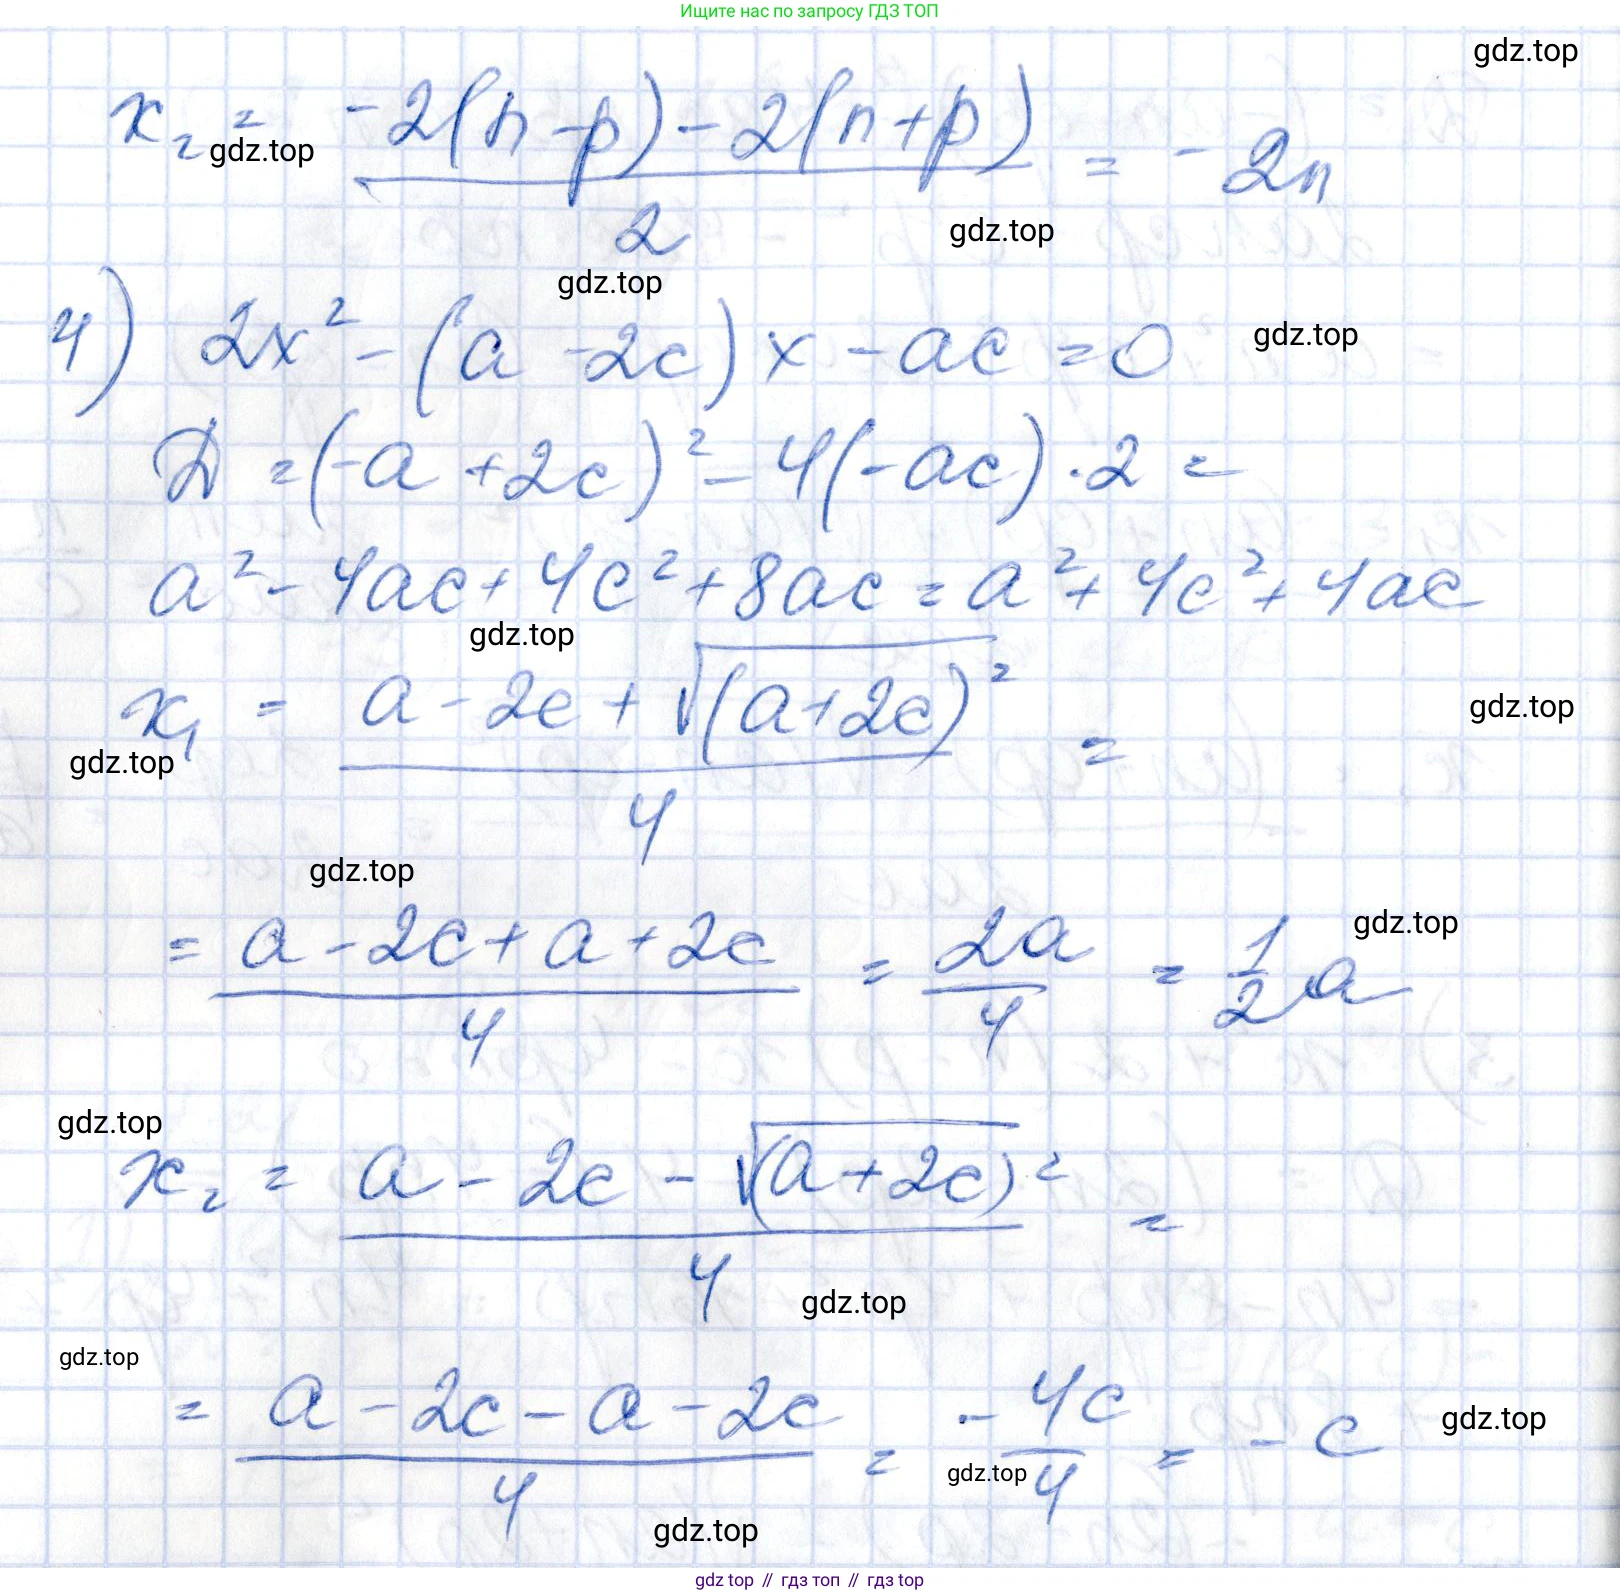 Ищите нас по запросу ГДЗ ТОП
gdz.top
x₂ = (-2(n-p) - 2(n+p))/2 = -2n
gdz.top
gdz.top
gdz.top
4) 2x² - (a - 2c)x - ac = 0
gdz.top
D = (-a + 2c)² - 4(-ac)·2 =
a² - 4ac + 4c² + 8ac = a² + 4c² + 4ac
gdz.top
x₁ = (a - 2c + √(a+2c)²)/4 =
gdz.top
gdz.top
gdz.top
= (a - 2c + a + 2c)/4 = 2a/4 = 1/2 a
gdz.top
gdz.top
x₂ = (a - 2c - √(a+2c)²)/4 =
gdz.top
gdz.top
= (a - 2c - a - 2c)/4 = -4c/4 = -c
gdz.top
gdz.top
gdz.top
gdz top // гдз топ // гдз top